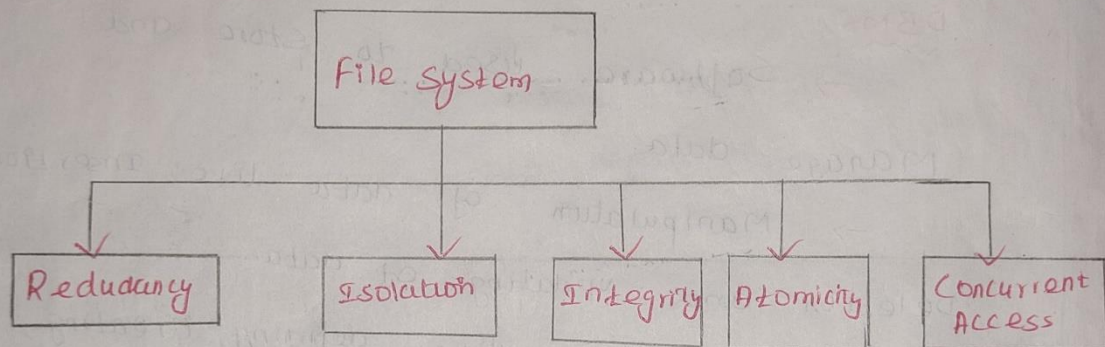 File system
Redudancy
Isolation
Integrity
Atomicity
Concurrent
Access